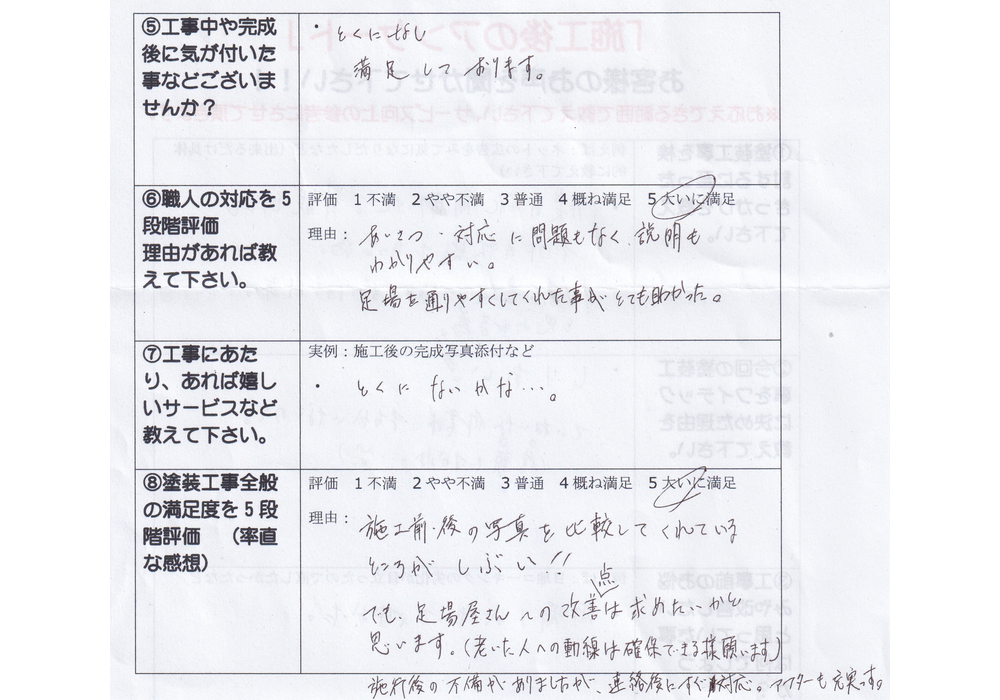 ⑤工事中や完成
後に気が付いた
事などございま
せんか？
・とくになし
満足しております。
⑥職人の対応を5
段階評価
理由があれば教
えて下さい。
評価 1不満 2やや不満 3普通 4概ね満足 5大いに満足
理由：あいさつ・対応に問題もなく、説明も
わかりやすい。
足場を通りやすくしてくれた事がとても助かった。
⑦工事にあた
り、あれば嬉し
いサービスなど
教えて下さい。
実例：施工後の完成写真添付など
・とくにないかな…。
⑧塗装工事全般
の満足度を5段
階評価 （率直
な感想）
評価 1不満 2やや不満 3普通 4概ね満足 5大いに満足
理由：施工前・後の写真を比較してくれている
ところがしぶい!!
でも、足場屋さんへの改善点は求めたいかと
思います。(老いた人への動線は確保できる様願います)
施行後の不備がありましたが、連絡後にすぐ対応。アフターも充実っす。